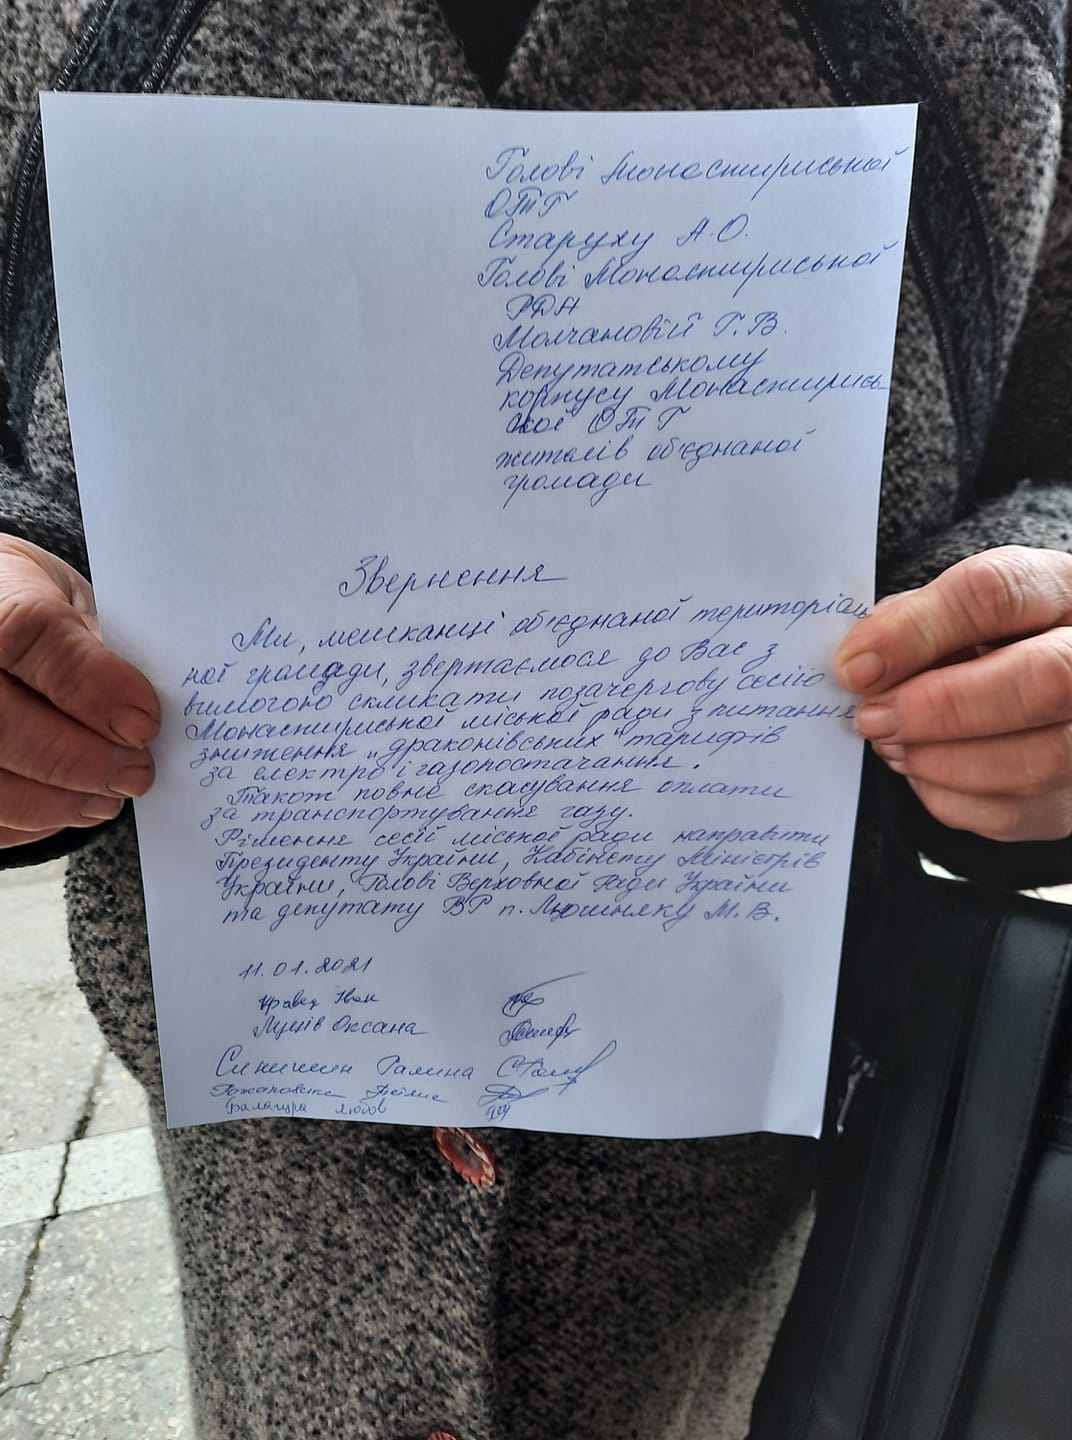 Голові Монастириської
ОТГ
Старуху А.О.
Голові Монастириської
РДА
Молчановій Г.В.
Депутатському
корпусу Монастирись-
кої ОТГ
жителів об'єднаної
громади
Звернення
Ми, мешканці об'єднаної територіаль
ної громади, звертаємося до Вас з
вимогою скликати позачергову сесію
Монастириської міської ради з питання
зниження „драконівських" тарифів
за електро і газопостачання.
Також повне скасування оплати
за транспортування газу.
Рішення сесії міської ради направити
Президенту України, Кабінету Міністрів
України, Голові Верховної Ради України
та депутату ВР п. Люшняку М.В.
11.01.2021
Кравец Іван
Луців Оксана
Синишин Галина
Балагура Любов